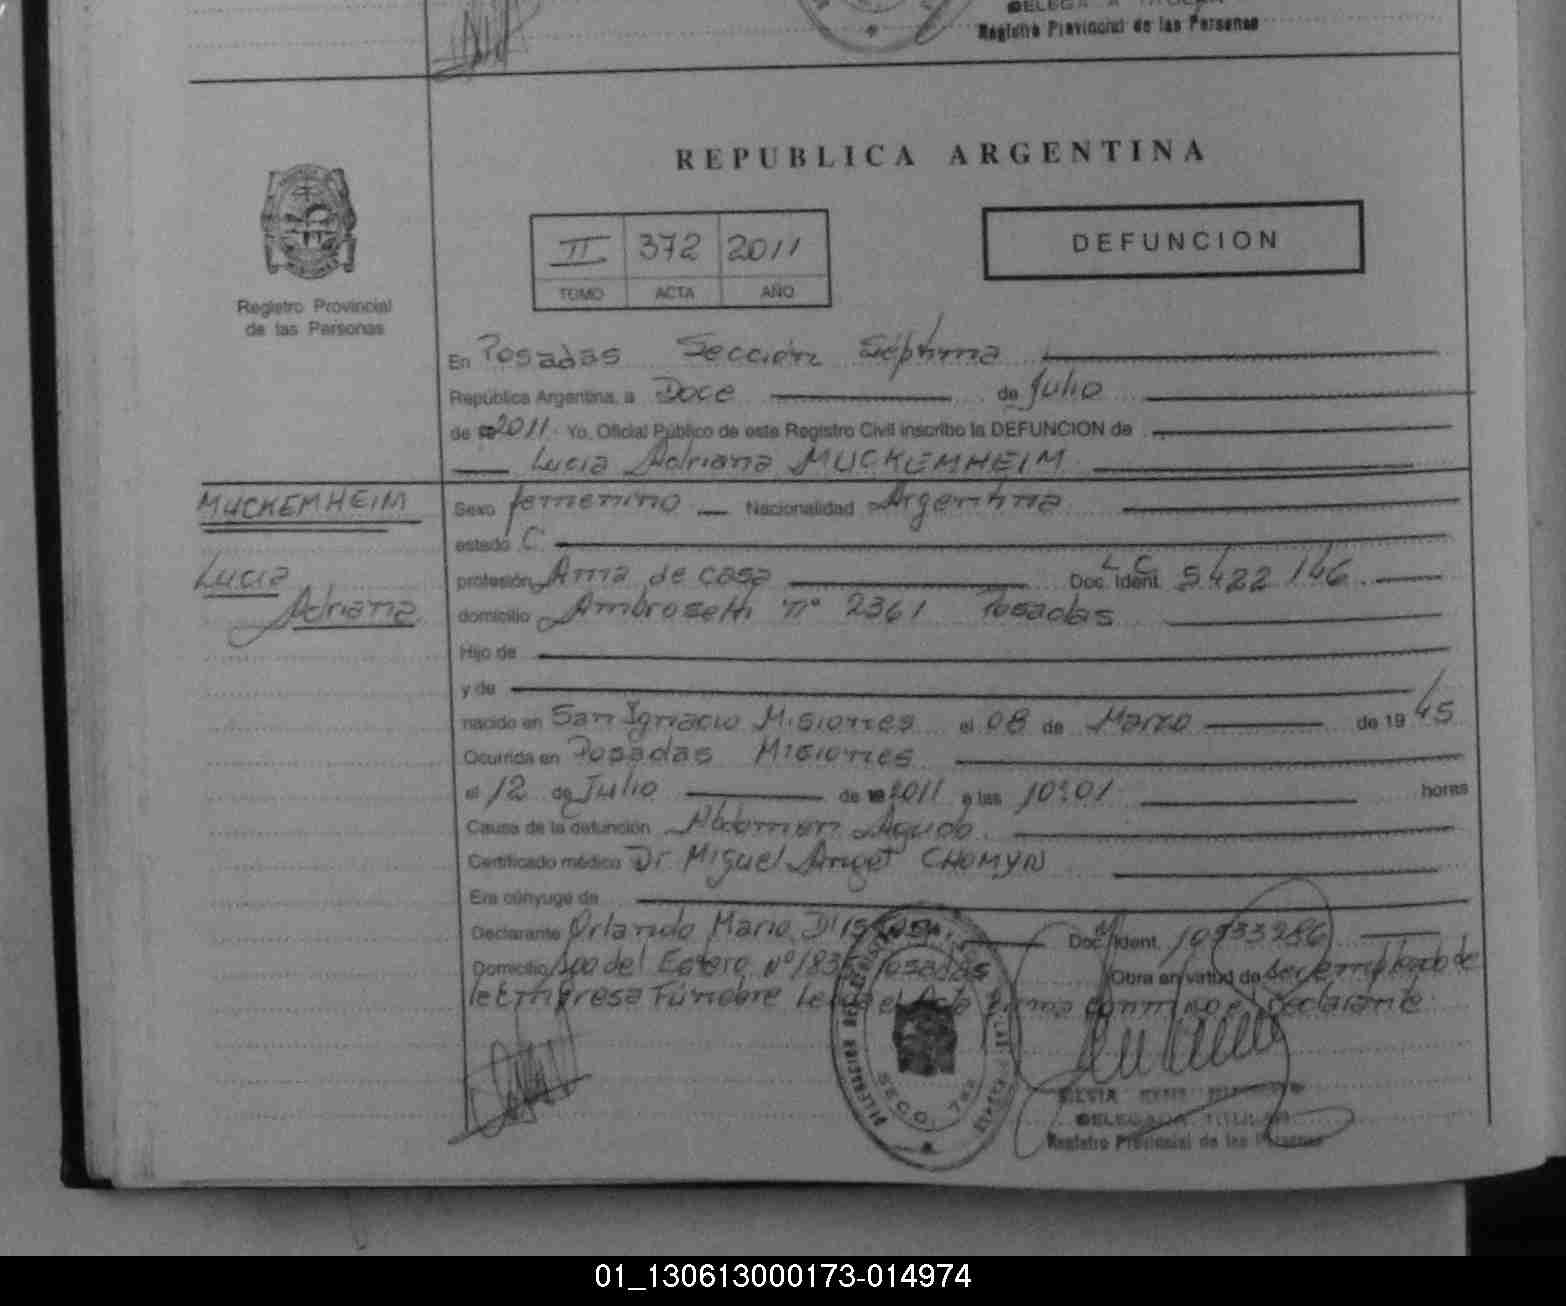 DELEGADA TITULAR
Registro Provincial de las Personas
REPUBLICA ARGENTINA
II 372 2011
TOMO ACTA AÑO
DEFUNCION
Registro Provincial
de las Personas
En Posadas Sección Séptima
República Argentina, a Doce de Julio
de 2011 Yo, Oficial Público de este Registro Civil inscribo la DEFUNCION de
Lucia Adriana MUCKEMHEIM
MUCKEMHEIM
Lucia
Adriana
Sexo femenino Nacionalidad Argentina
estado C
profesión Ama de casa Doc. Ident. L C 5422 146
domicilio Ambrosetti nº 2361 Posadas
Hijo de
y de
nacido en San Ignacio Misiones el 08 de Marzo de 1945
Ocurrida en Posadas Misiones
el 12 de Julio de 2011 a las 10:01 horas
Causa de la defunción Abdomen Agudo
Certificado médico Dr Miguel Angel CHOMYN
Era cónyuge de
Declarante Orlando Mario Doc. Ident. 10933286
Domicilio Sgo del Estero Nº 183 Posadas Obra en virtud de ser empleado de
la Empresa Fúnebre Leída el Acta firma conmigo el declarante
SECC. 7ma
SILVIA
DELEGADA TITULAR
Registro Provincial de las Personas
01_130613000173-014974